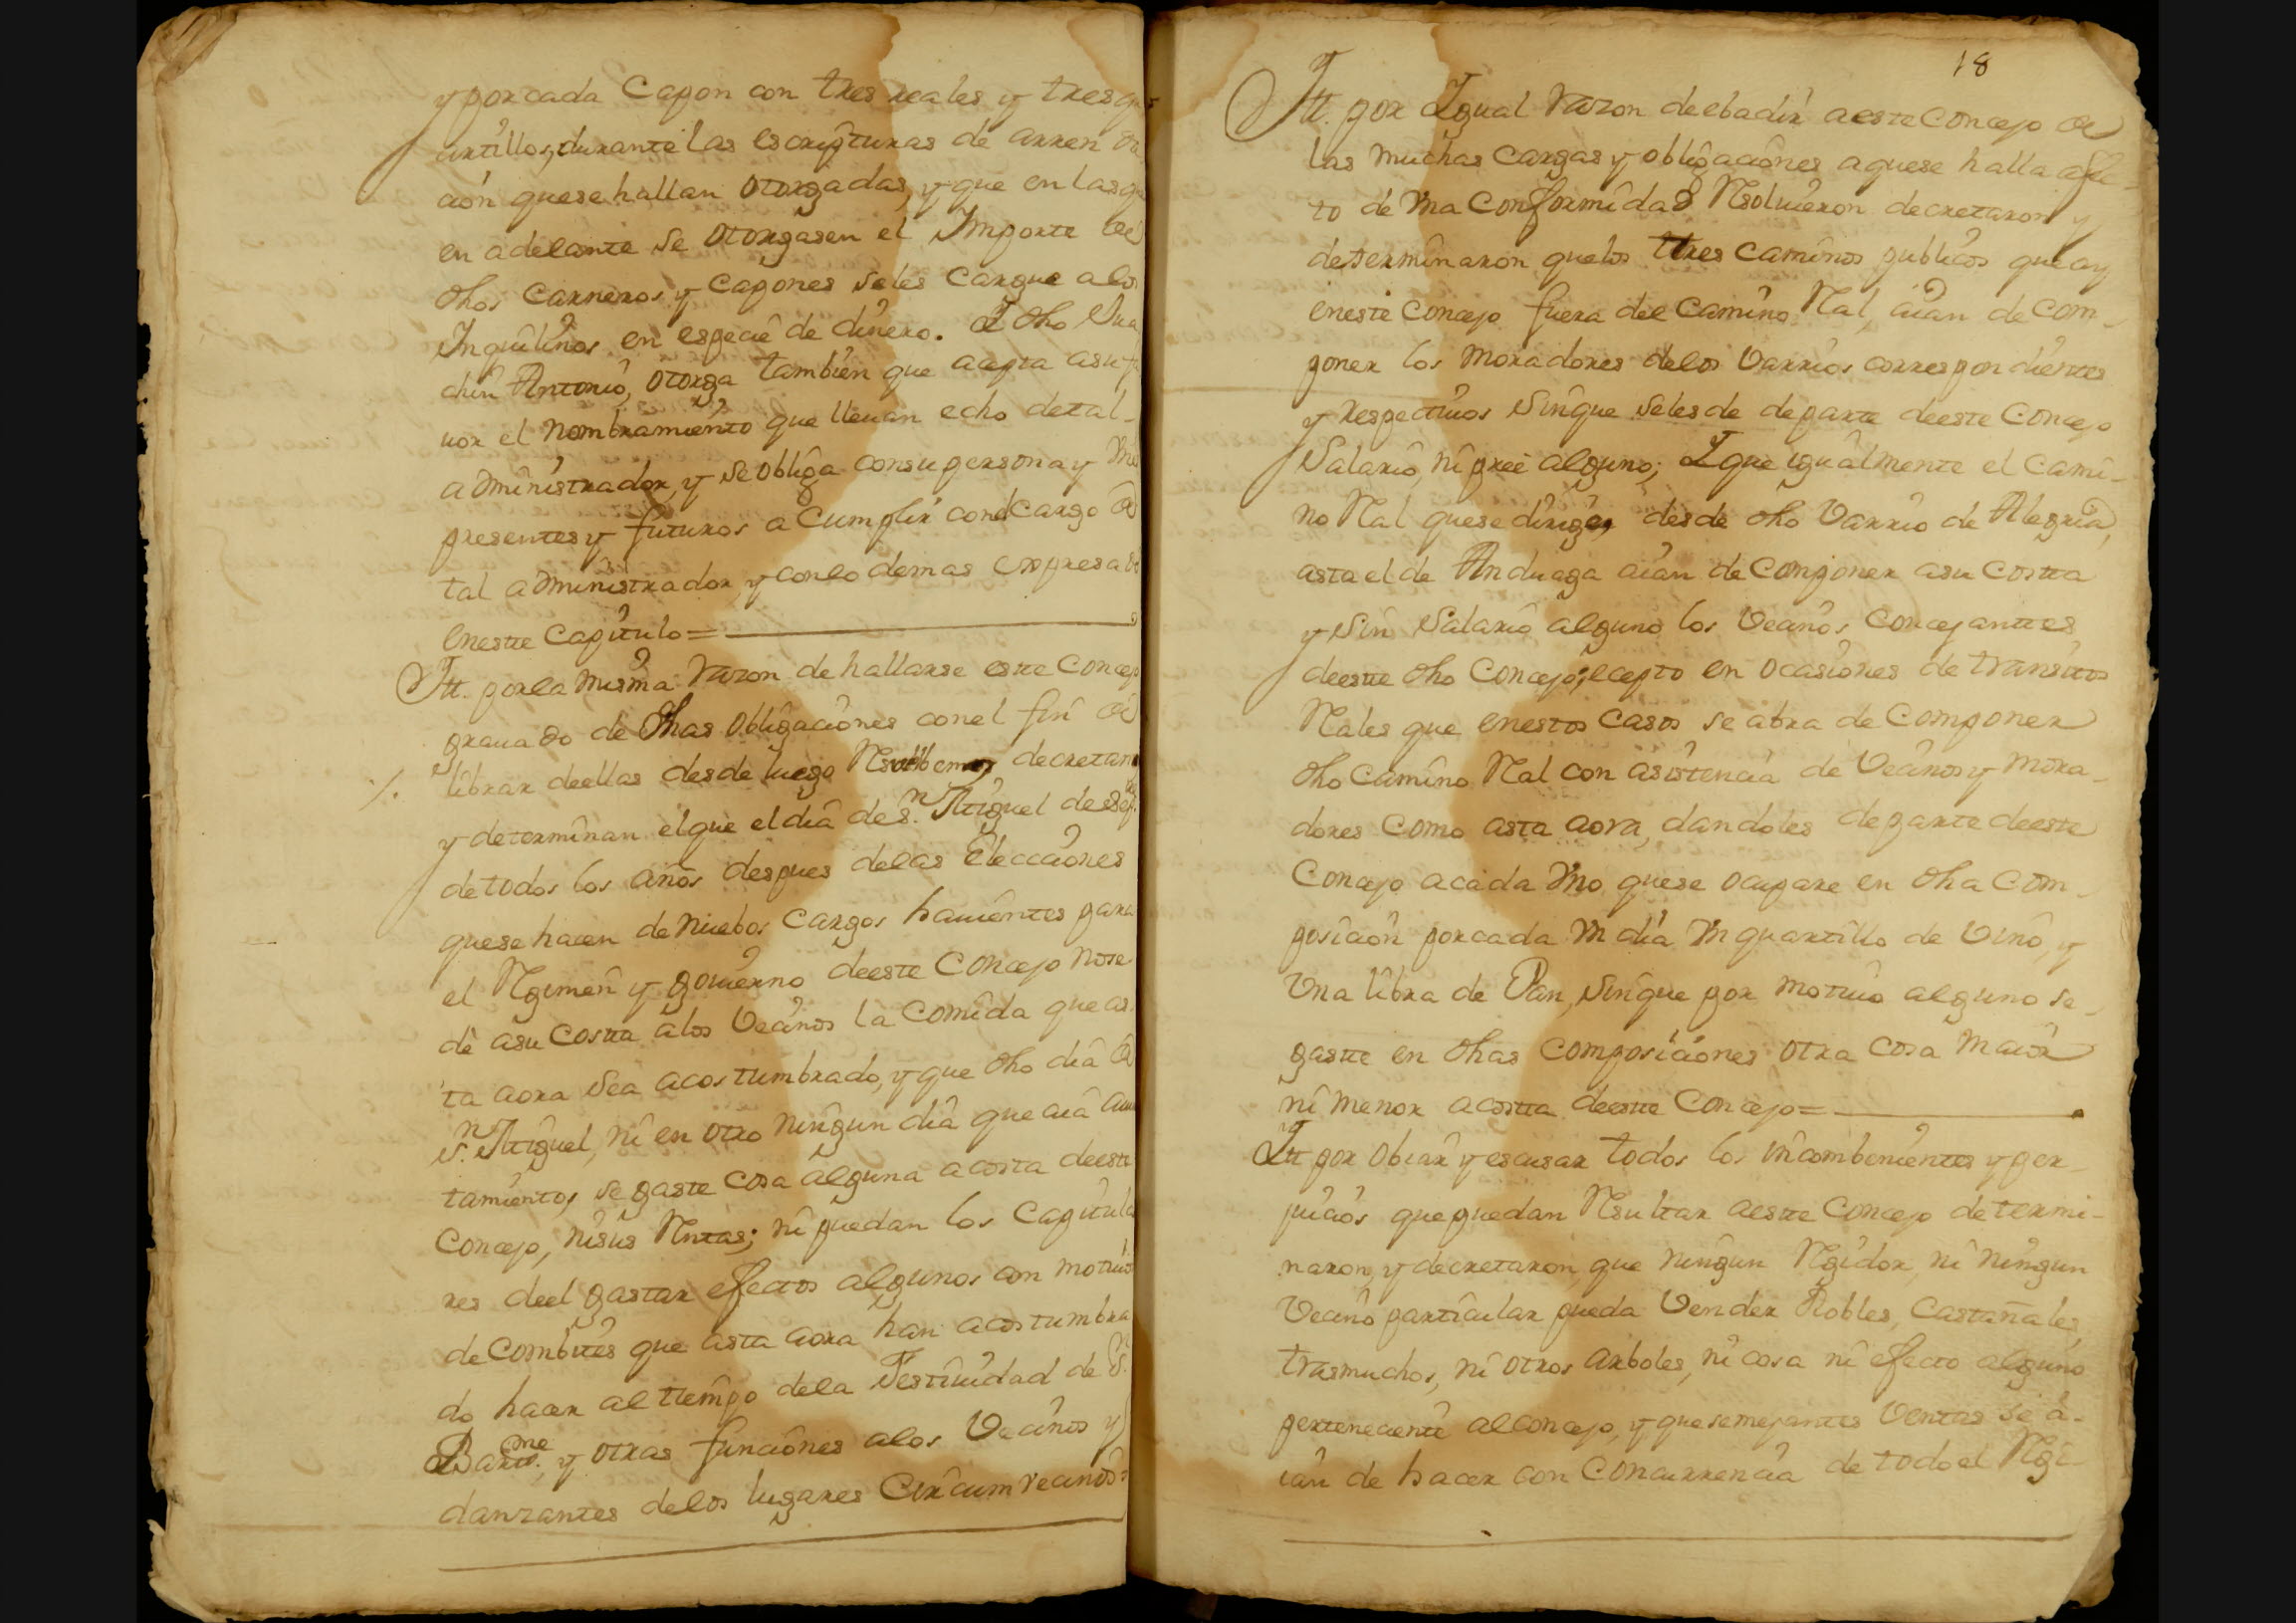 y por cada Capon con tres reales y tres qu
artillos, durante las escripturas de arren da
ción que se hallan otorgadas, y que en las q
en adelante se otorgasen el Importe de
dhos Carneros y capones se les cargue a los
Inquilinos en especie de dinero. Y dho Jua
chin Antonio, otorga tambien que acepta a su fa
uor el nombramiento que lleuan echo de tal
administrador, y se obliga con su persona y
presentes y futuros a Cumplir con el cargo de
tal administrador, y con lo demas expresado
en este Capitulo =
Itt. por la misma razon de hallarse este Concejo
grauado de dhas obligaciones con el fin de
librar de ellas desde luego decretan
y determinan el que el dia de S.n Miguel de
de todos los años despues de las Elecciones
que se hacen de nuebos Cargos hauientes para
el Rejimen y gouierno de este Concejo no se
dè a su costta a los Vecinos la comida que as
ta aora sea acostumbrado, y que dho dia de
S.n Miguel, ni en otro ningun dia que aia aiun
tamiento, se gaste cosa alguna a costa de este
Concejo, ni sus Rentas; ni puedan los Capitula
res de el gastar efectos algunos con motiuo
de Combites que asta aora han acostumbra
do hacer al tiempo de la Festiuidad de S.n
Barme. y otras funciones a los Vecinos y
danzantes de los lugares Circum vecinos =
18
Itt. por Igual razon de ebadir a este Concejo de
las muchas cargas y obligaciones a que se halla afec
to de Vna Conformidad Resoluieron decretaron y
determinaron que los ttres caminos publicos que ay
en este Concejo fuera de el Camino Real, aian de com
poner los moradores de los Varrios correspondientes
y respectiuos sin que se les de de parte de este Concejo
Salario, ni pree alguno; Y que igualmente el Cami
no Real que se dirige, desde dho Varrio de Alegria,
asta el de Anduaga aian de componer a su costta
y sin Salario alguno los Vecinos Concejanttes
de este dho Concejo; ecepto en ocasiones de transitos
Reales que en estos casos se abra de componer
dho camino Real con asistencia de Vecinos y mora
dores como asta aora, dandoles de parte de este
Concejo a cada Vno que se ocupare en dha com
posición por cada Vn dia Vn quartillo de Vino, y
Vna libra de Pan, sin que por motiuo alguno se
gaste en dhas composiciones otra cosa maior
ni menor a costta de este Concejo =
Itt por obiar y escusar todos los incombenientes y per
juicios que puedan Resultar a este Concejo determi
naron, y decretaron, que ningun Regidor, ni ningun
Vecino particular pueda Vender Robles, Castañales,
trasmuchos, ni otros arboles, ni cosa ni efecto alguno
perteneciente al concejo, y que semejantes Ventas se a
ian de hacer con Concurrencia de todo el Regi